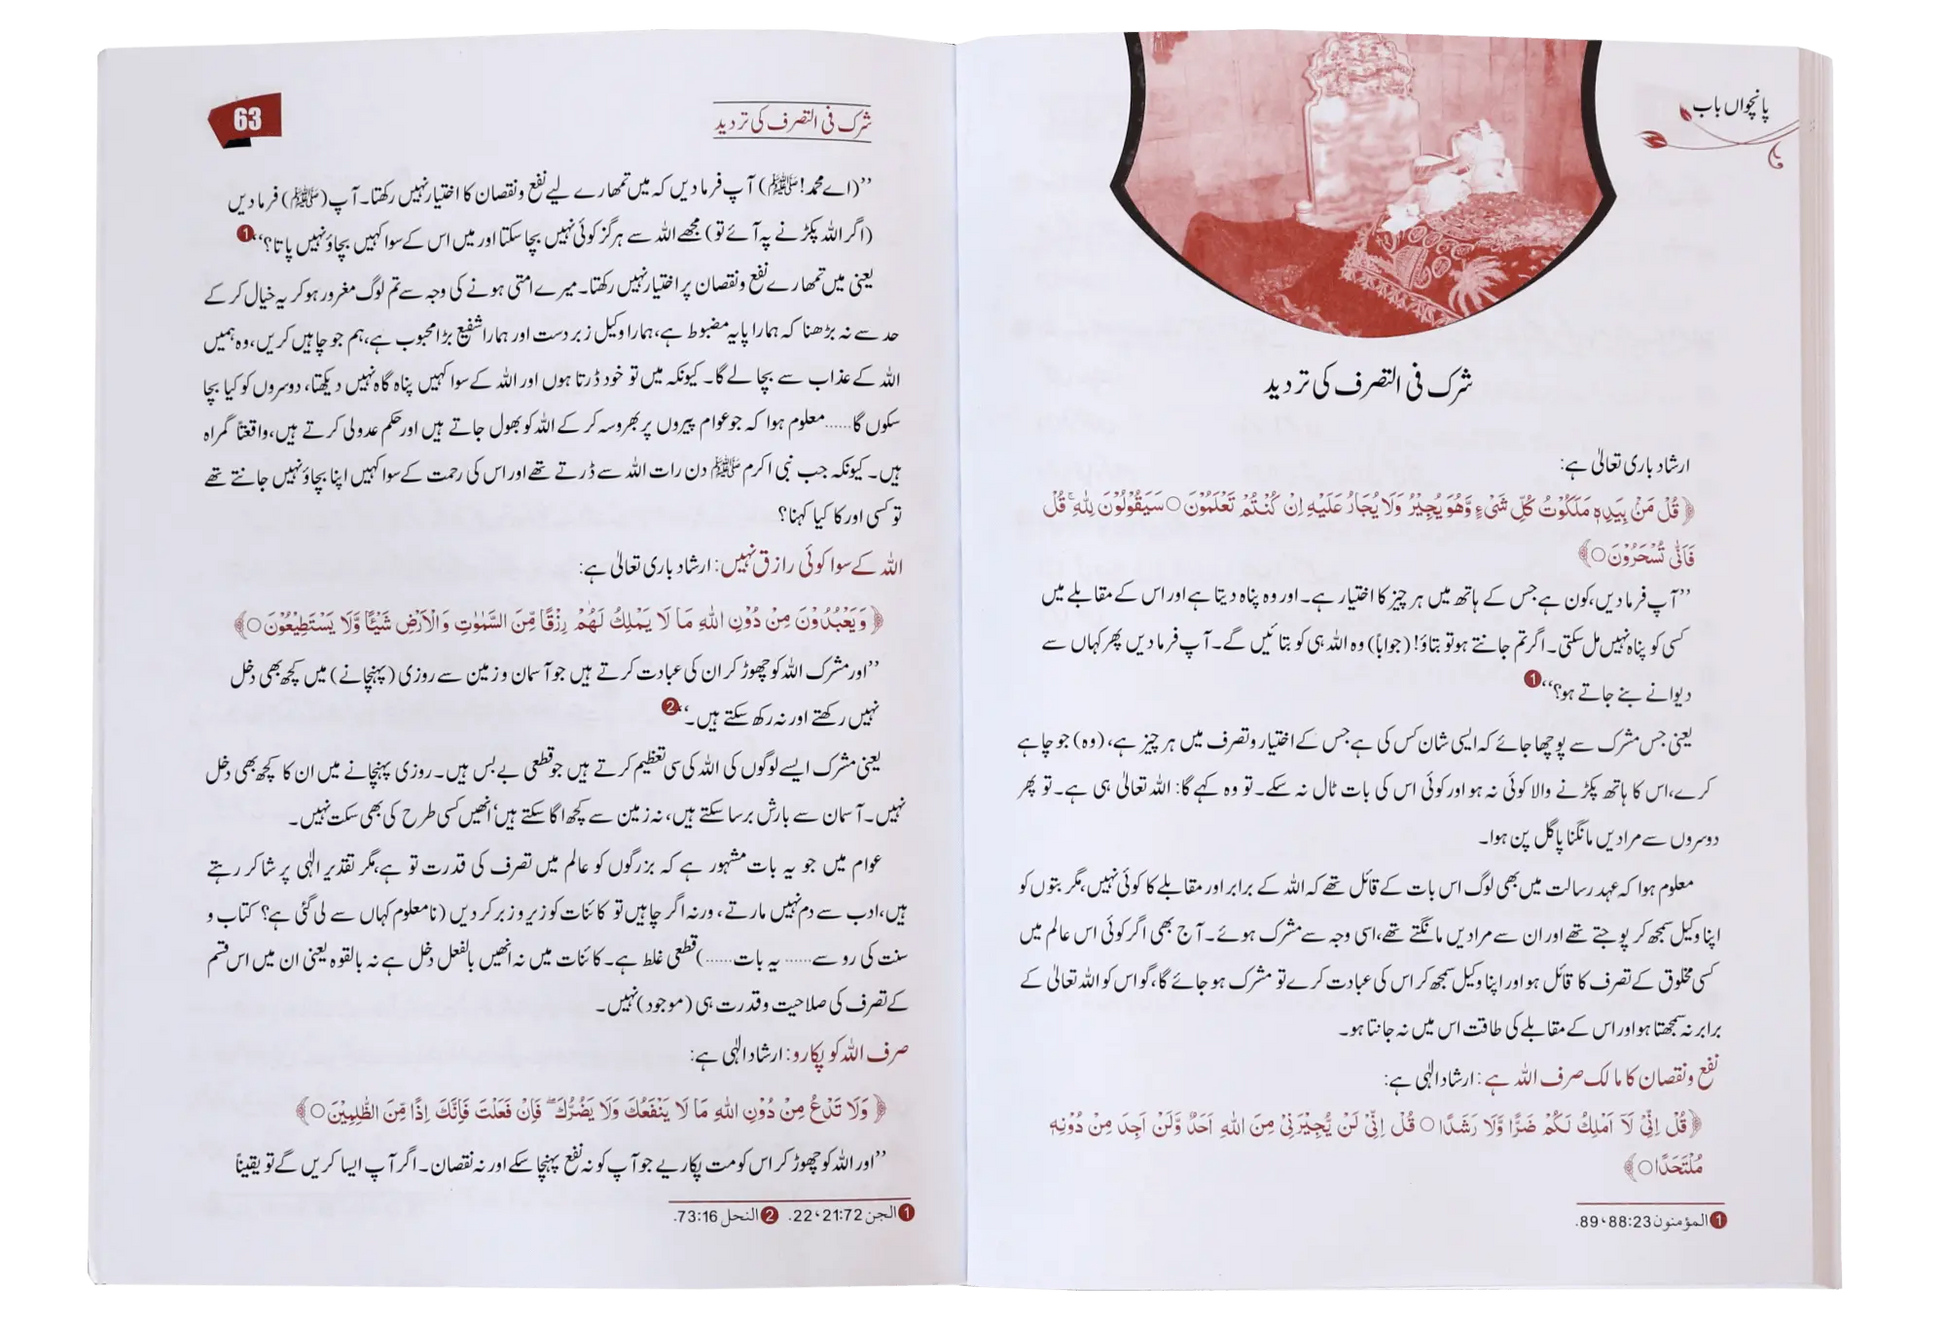 پانچواں باب
شرک فی التصرف کی تردید
ارشاد باری تعالیٰ ہے:
﴿قُلْ مَنْۢ بِيَدِهٖ مَلَكُوْتُ كُلِّ شَيْءٍ وَّهُوَ يُجِيْرُ وَلَا يُجَارُ عَلَيْهِ اِنْ كُنْتُمْ تَعْلَمُوْنَ○ سَيَقُوْلُوْنَ لِلّٰهِ ۚ قُلْ
فَاَنّٰى تُسْحَرُوْنَ○﴾
’’آپ فرما دیں، کون ہے جس کے ہاتھ میں ہر چیز کا اختیار ہے۔ اور وہ پناہ دیتا ہے اور اس کے مقابلے میں
کسی کو پناہ نہیں مل سکتی۔ اگر تم جانتے ہو تو بتاؤ! (جواباً) وہ اللہ ہی کو بتائیں گے۔ آپ فرما دیں پھر کہاں سے
دیوانے بنے جاتے ہو؟‘‘ 1
یعنی جس مشرک سے پوچھا جائے کہ ایسی شان کس کی ہے جس کے اختیار و تصرف میں ہر چیز ہے، (وہ) جو چاہے
کرے، اس کا ہاتھ پکڑنے والا کوئی نہ ہو اور کوئی اس کی بات ٹال نہ سکے۔ تو وہ کہے گا: اللہ تعالیٰ ہی ہے۔ تو پھر
دوسروں سے مرادیں مانگنا پاگل پن ہوا۔
معلوم ہوا کہ عہد رسالت میں بھی لوگ اس بات کے قائل تھے کہ اللہ کے برابر اور مقابلے کا کوئی نہیں، مگر بتوں کو
اپنا وکیل سمجھ کر پوجتے تھے اور ان سے مرادیں مانگتے تھے، اسی وجہ سے مشرک ہوئے۔ آج بھی اگر کوئی اس عالم میں
کسی مخلوق کے تصرف کا قائل ہو اور اپنا وکیل سمجھ کر اس کی عبادت کرے تو مشرک ہو جائے گا، گو اس کو اللہ تعالیٰ کے
برابر نہ سمجھتا ہو اور اس کے مقابلے کی طاقت اس میں نہ جانتا ہو۔
نفع و نقصان کا مالک صرف اللہ ہے: ارشاد الٰہی ہے:
﴿قُلْ اِنِّيْ لَآ اَمْلِكُ لَكُمْ ضَرًّا وَّلَا رَشَدًا○ قُلْ اِنِّيْ لَنْ يُّجِيْرَنِيْ مِنَ اللّٰهِ اَحَدٌ وَّلَنْ اَجِدَ مِنْ دُوْنِهٖ
مُلْتَحَدًا○﴾
1 المؤمنون 88:23، 89.
شرک فی التصرف کی تردید
63
’’(اے محمد! ﷺ) آپ فرما دیں کہ میں تمھارے لیے نفع و نقصان کا اختیار نہیں رکھتا۔ آپ (ﷺ) فرما دیں
(اگر اللہ پکڑنے پہ آئے تو) مجھے اللہ سے ہرگز کوئی نہیں بچا سکتا اور میں اس کے سوا کہیں بچاؤ نہیں پاتا؟‘‘ 1
یعنی میں تمھارے نفع و نقصان پر اختیار نہیں رکھتا۔ میرے امتی ہونے کی وجہ سے تم لوگ مغرور ہو کر یہ خیال کر کے
حد سے نہ بڑھنا کہ ہمارا پایہ مضبوط ہے، ہمارا وکیل زبردست اور ہمارا شفیع بڑا محبوب ہے، ہم جو چاہیں کریں، وہ ہمیں
اللہ کے عذاب سے بچا لے گا۔ کیونکہ میں تو خود ڈرتا ہوں اور اللہ کے سوا کہیں پناہ گاہ نہیں دیکھتا، دوسروں کو کیا بچا
سکوں گا...... معلوم ہوا کہ جو عوام پیروں پر بھروسہ کر کے اللہ کو بھول جاتے ہیں اور حکم عدولی کرتے ہیں، واقعتاً گمراہ
ہیں۔ کیونکہ جب نبی اکرم ﷺ دن رات اللہ سے ڈرتے تھے اور اس کی رحمت کے سوا کہیں اپنا بچاؤ نہیں جانتے تھے
تو کسی اور کا کیا کہنا؟
اللہ کے سوا کوئی رازق نہیں: ارشاد باری تعالیٰ ہے:
﴿وَيَعْبُدُوْنَ مِنْ دُوْنِ اللّٰهِ مَا لَا يَمْلِكُ لَهُمْ رِزْقًا مِّنَ السَّمٰوٰتِ وَالْاَرْضِ شَيْئًا وَّلَا يَسْتَطِيْعُوْنَ○﴾
’’اور مشرک اللہ کو چھوڑ کر ان کی عبادت کرتے ہیں جو آسمان و زمین سے روزی (پہنچانے) میں کچھ بھی دخل
نہیں رکھتے اور نہ رکھ سکتے ہیں۔‘‘ 2
یعنی مشرک ایسے لوگوں کی اللہ کی سی تعظیم کرتے ہیں جو قطعی بے بس ہیں۔ روزی پہنچانے میں ان کا کچھ بھی دخل
نہیں۔ آسمان سے بارش برسا سکتے ہیں، نہ زمین سے کچھ اگا سکتے ہیں‘ انھیں کسی طرح کی بھی سکت نہیں۔
عوام میں جو یہ بات مشہور ہے کہ بزرگوں کو عالم میں تصرف کی قدرت تو ہے، مگر تقدیر الٰہی پر شاکر رہتے
ہیں، ادب سے دم نہیں مارتے، ورنہ اگر چاہیں تو کائنات کو زیر و زبر کر دیں (نامعلوم کہاں سے لی گئی ہے؟ کتاب و
سنت کی رو سے...... یہ بات......) قطعی غلط ہے۔ کائنات میں نہ انھیں بالفعل دخل ہے نہ بالقوہ یعنی ان میں اس قسم
کے تصرف کی صلاحیت و قدرت ہی (موجود) نہیں۔
صرف اللہ کو پکارو: ارشاد الٰہی ہے:
﴿وَلَا تَدْعُ مِنْ دُوْنِ اللّٰهِ مَا لَا يَنْفَعُكَ وَلَا يَضُرُّكَ ۚ فَاِنْ فَعَلْتَ فَاِنَّكَ اِذًا مِّنَ الظّٰلِمِيْنَ○﴾
’’اور اللہ کو چھوڑ کر اس کو مت پکاریے جو آپ کو نہ نفع پہنچا سکے اور نہ نقصان۔ اگر آپ ایسا کریں گے تو یقیناً
1 الجن 21:72، 22. 2 النحل 73:16.